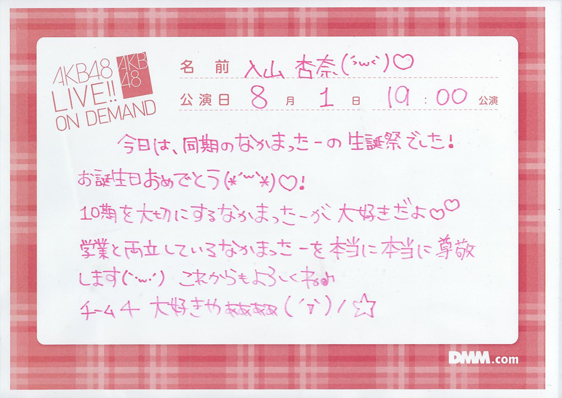 AKB48
LIVE!!
ON DEMAND
AKB
48
名前 入山 杏奈(´･ω･`)♡
公演日 8月1日 19:00公演
今日は、同期のなかまったーの生誕祭でした!
お誕生日おめでとう(*´˘`*)♡!
10期を大切にするなかまったーが大好きだよ♡♡
学業と両立しているなかまったーを本当に本当に尊敬
します(´･ω･`) これからもよろしくね
チーム4 大好きやぁぁぁぁ(´ｱ`)ノ☆
DMM.com